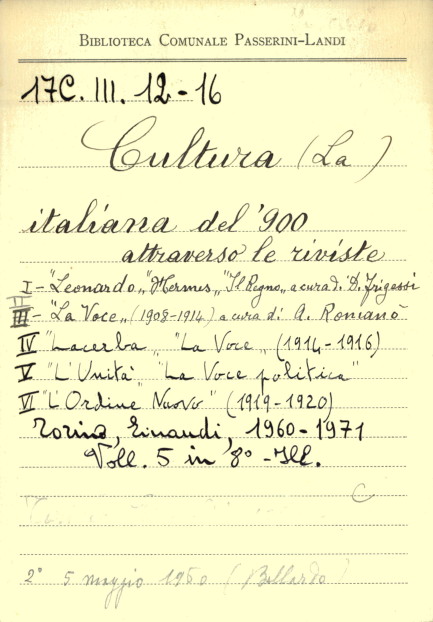 BIBLIOTECA COMUNALE PASSERINI-LANDI
17C. III. 12-16
Cultura (La)
italiana del '900
attraverso le riviste
I - "Leonardo", "Hermes", "Il Regno", a cura di D. Frigessi
III - "La Voce" (1908-1914) a cura di A. Romanò
IV "Lacerba", "La Voce" (1914-1916)
V "L'Unità" "La Voce politica"
VI "L'Ordine Nuovo" (1919-1920)
Torino, Einaudi, 1960-1971
Voll. 5 in 8° - Ill.
C
2° 5 maggio 1960 (